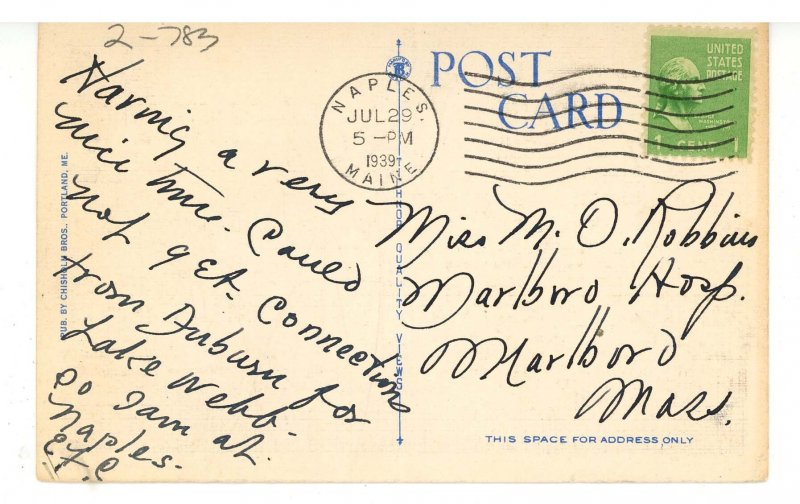 2-783
Having a very
nice time. Could
not get connections
from Auburn for
Lake Webb.
So I am at
Naples.
E.F.C
PUB. BY CHISHOLM BROS., PORTLAND, ME.
POST
CARD
NAPLES.
JUL 29
5 -PM
1939
MAINE
UNITED
STATES
POSTAGE
WASHINGTON
1 CENT 1
Miss M. O. Robbins
Marlboro Hosp.
Marlboro
Mass.
THIS SPACE FOR ADDRESS ONLY